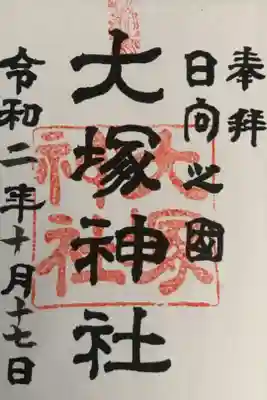 奉拝
日向之国
大塚神社
令和二年十月十七日
大塚
神社